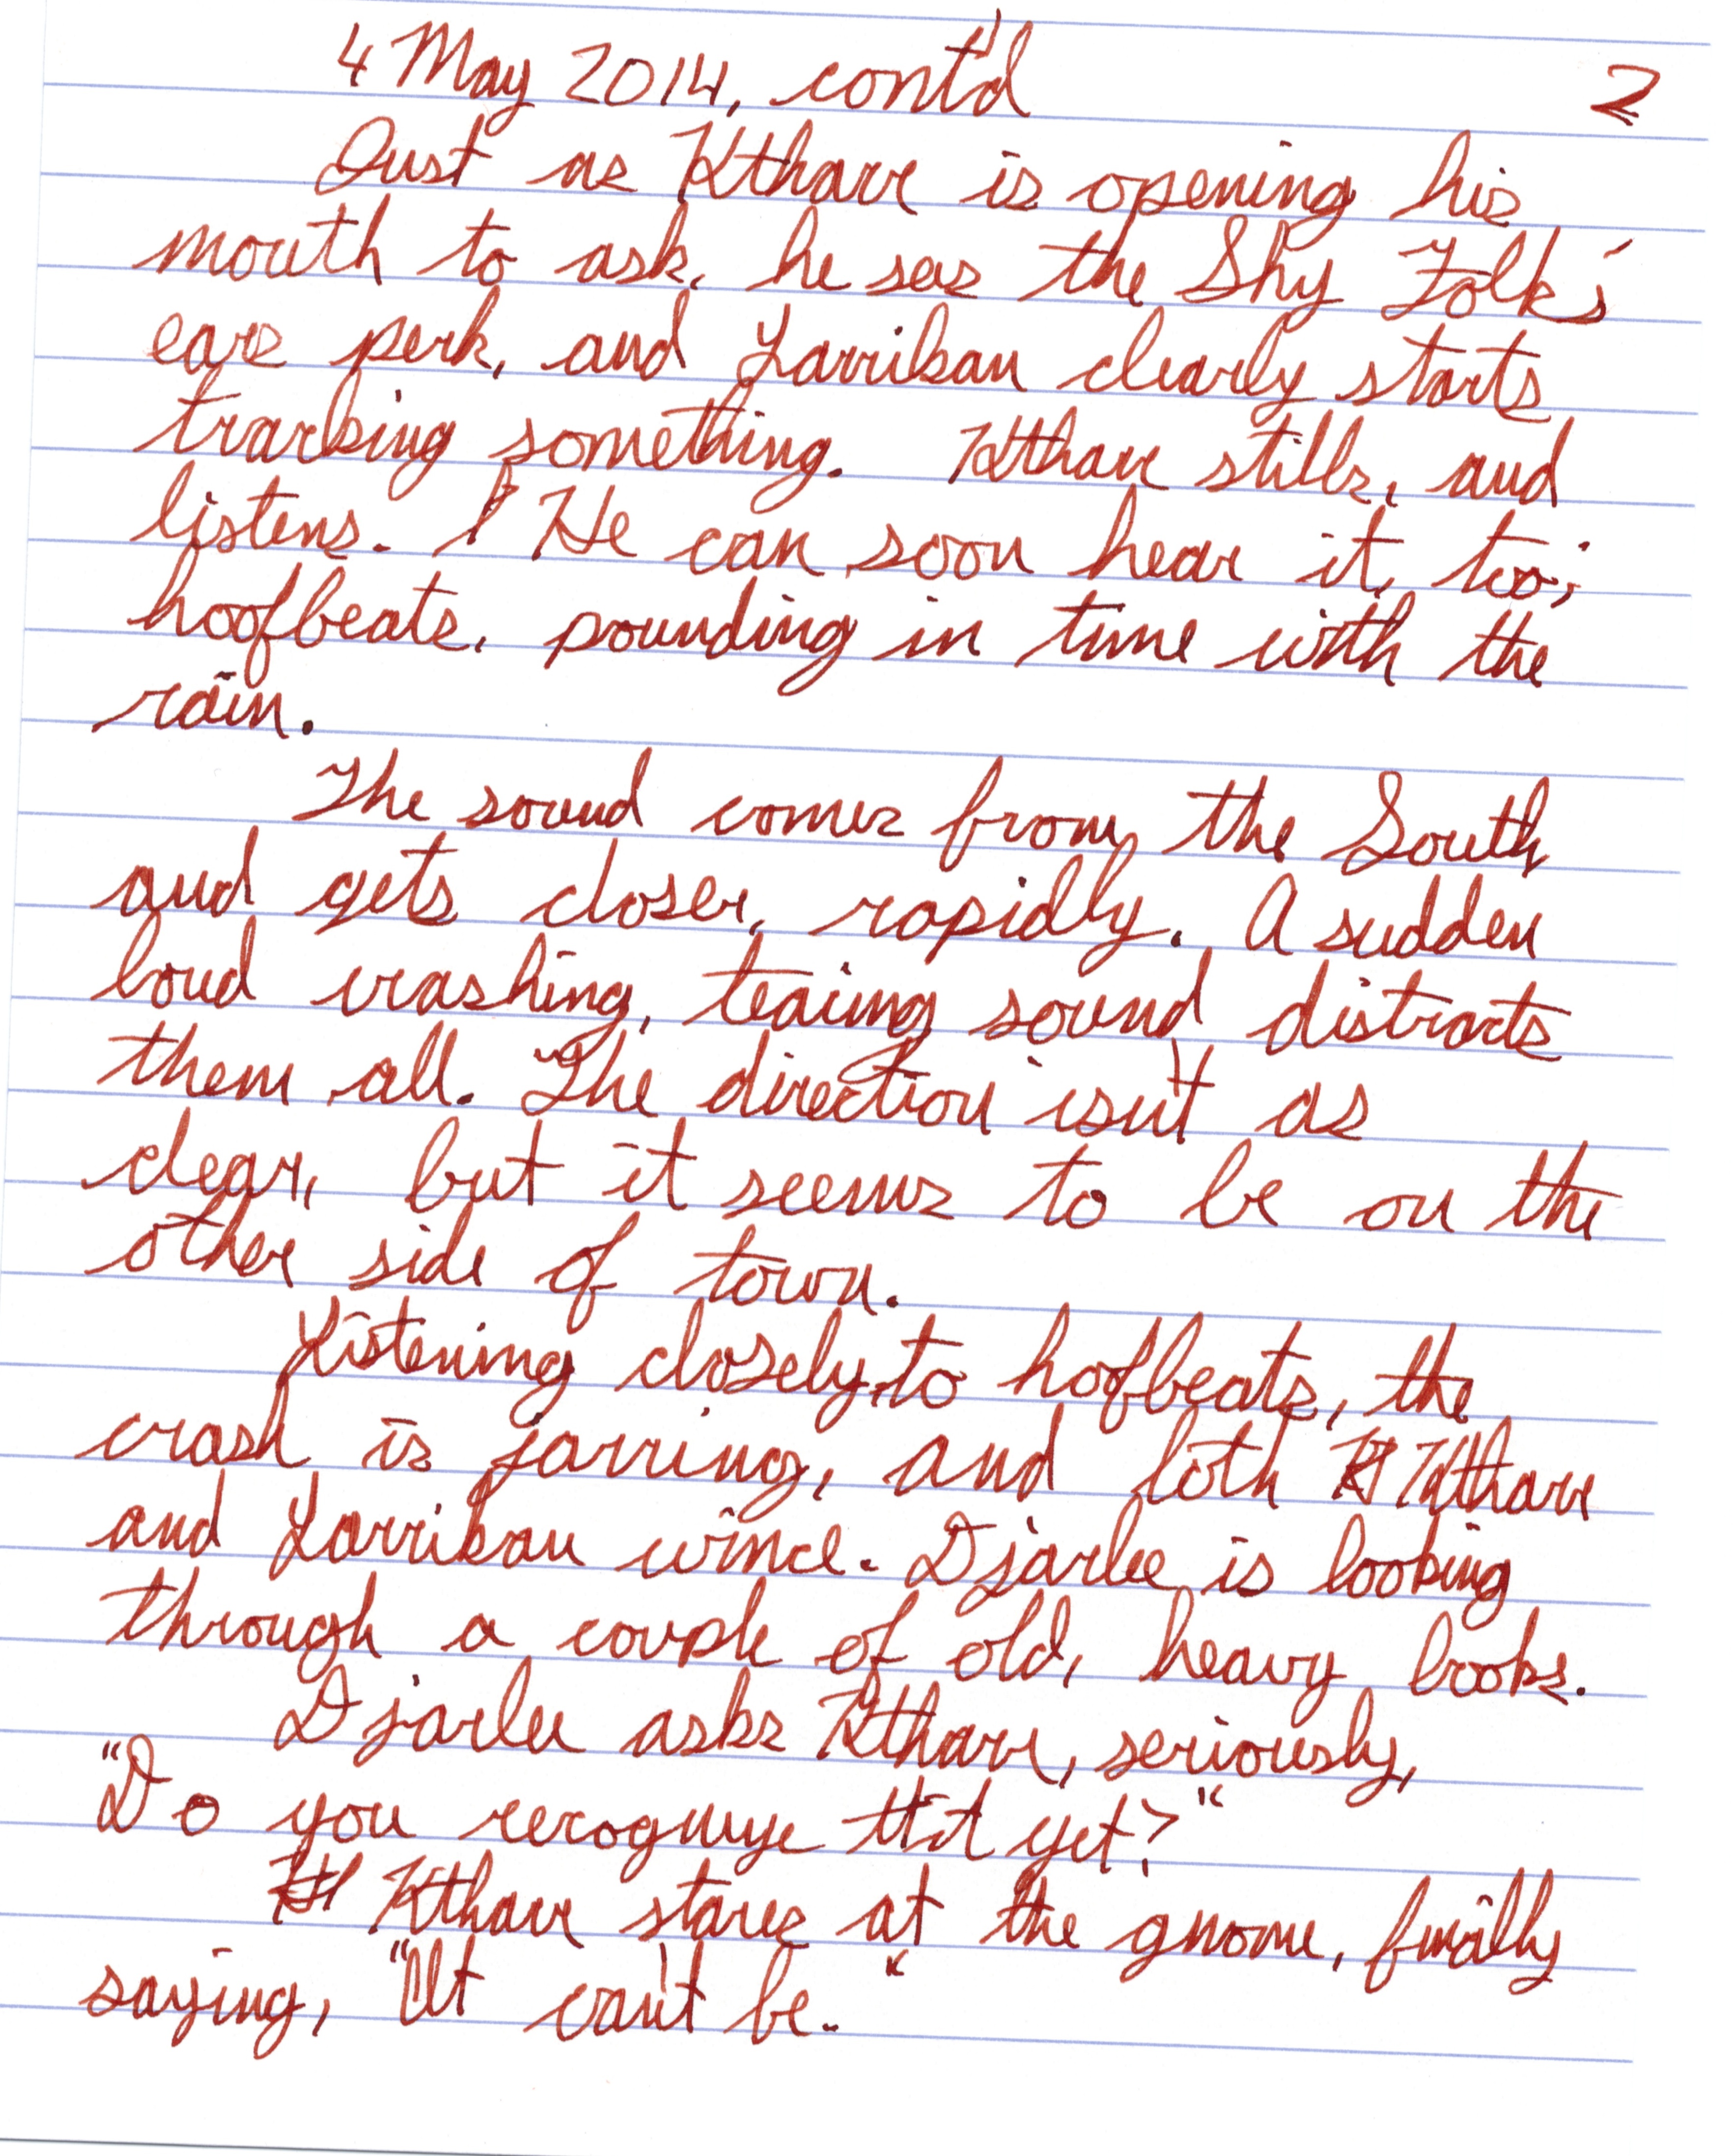 4 May 2014, cont'd 2
Just as Ktharr is opening his
mouth to ask, he sees the Shy Folk's
ears perk, and Larrikan clearly starts
tracking something. Ktharr stills, and
listens. He can soon hear it, too;
hoofbeats, pounding in time with the
rain.
The sound comes from the South
and gets closer, rapidly. A sudden
loud crashing, tearing sound distracts
them all. The direction isn't as
clear, but it seems to be on the
other side of town.
Listening closely to hoofbeats, the
crash is jarring, and both Ktharr
and Larrikan wince. Djarlee is looking
through a couple of old, heavy books.
Djarlee asks Ktharr, seriously,
"Do you recognize it yet?"
Ktharr stares at the gnome, finally
saying, "It can't be."